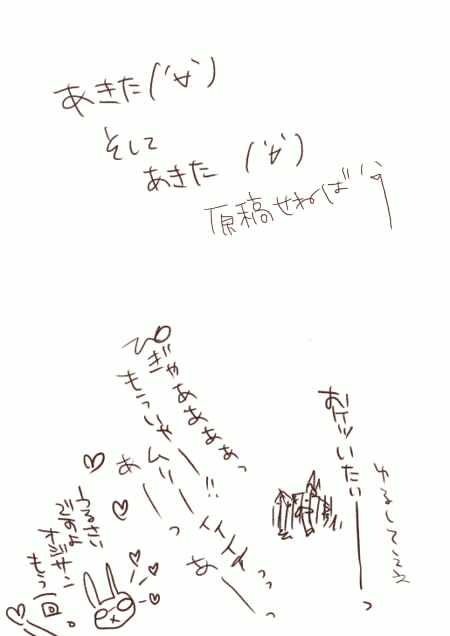 あきた('∀`)
そして
あきた ('∀`)
原稿せねば
おケツいたいーーっ
ゆるしてええ
ぴぎゃああああっ
もういやーー!!
ムリー
あーーっ
イイイイっっっ
あーーっ
うるさい
ですよ
オジサン
もう一回。